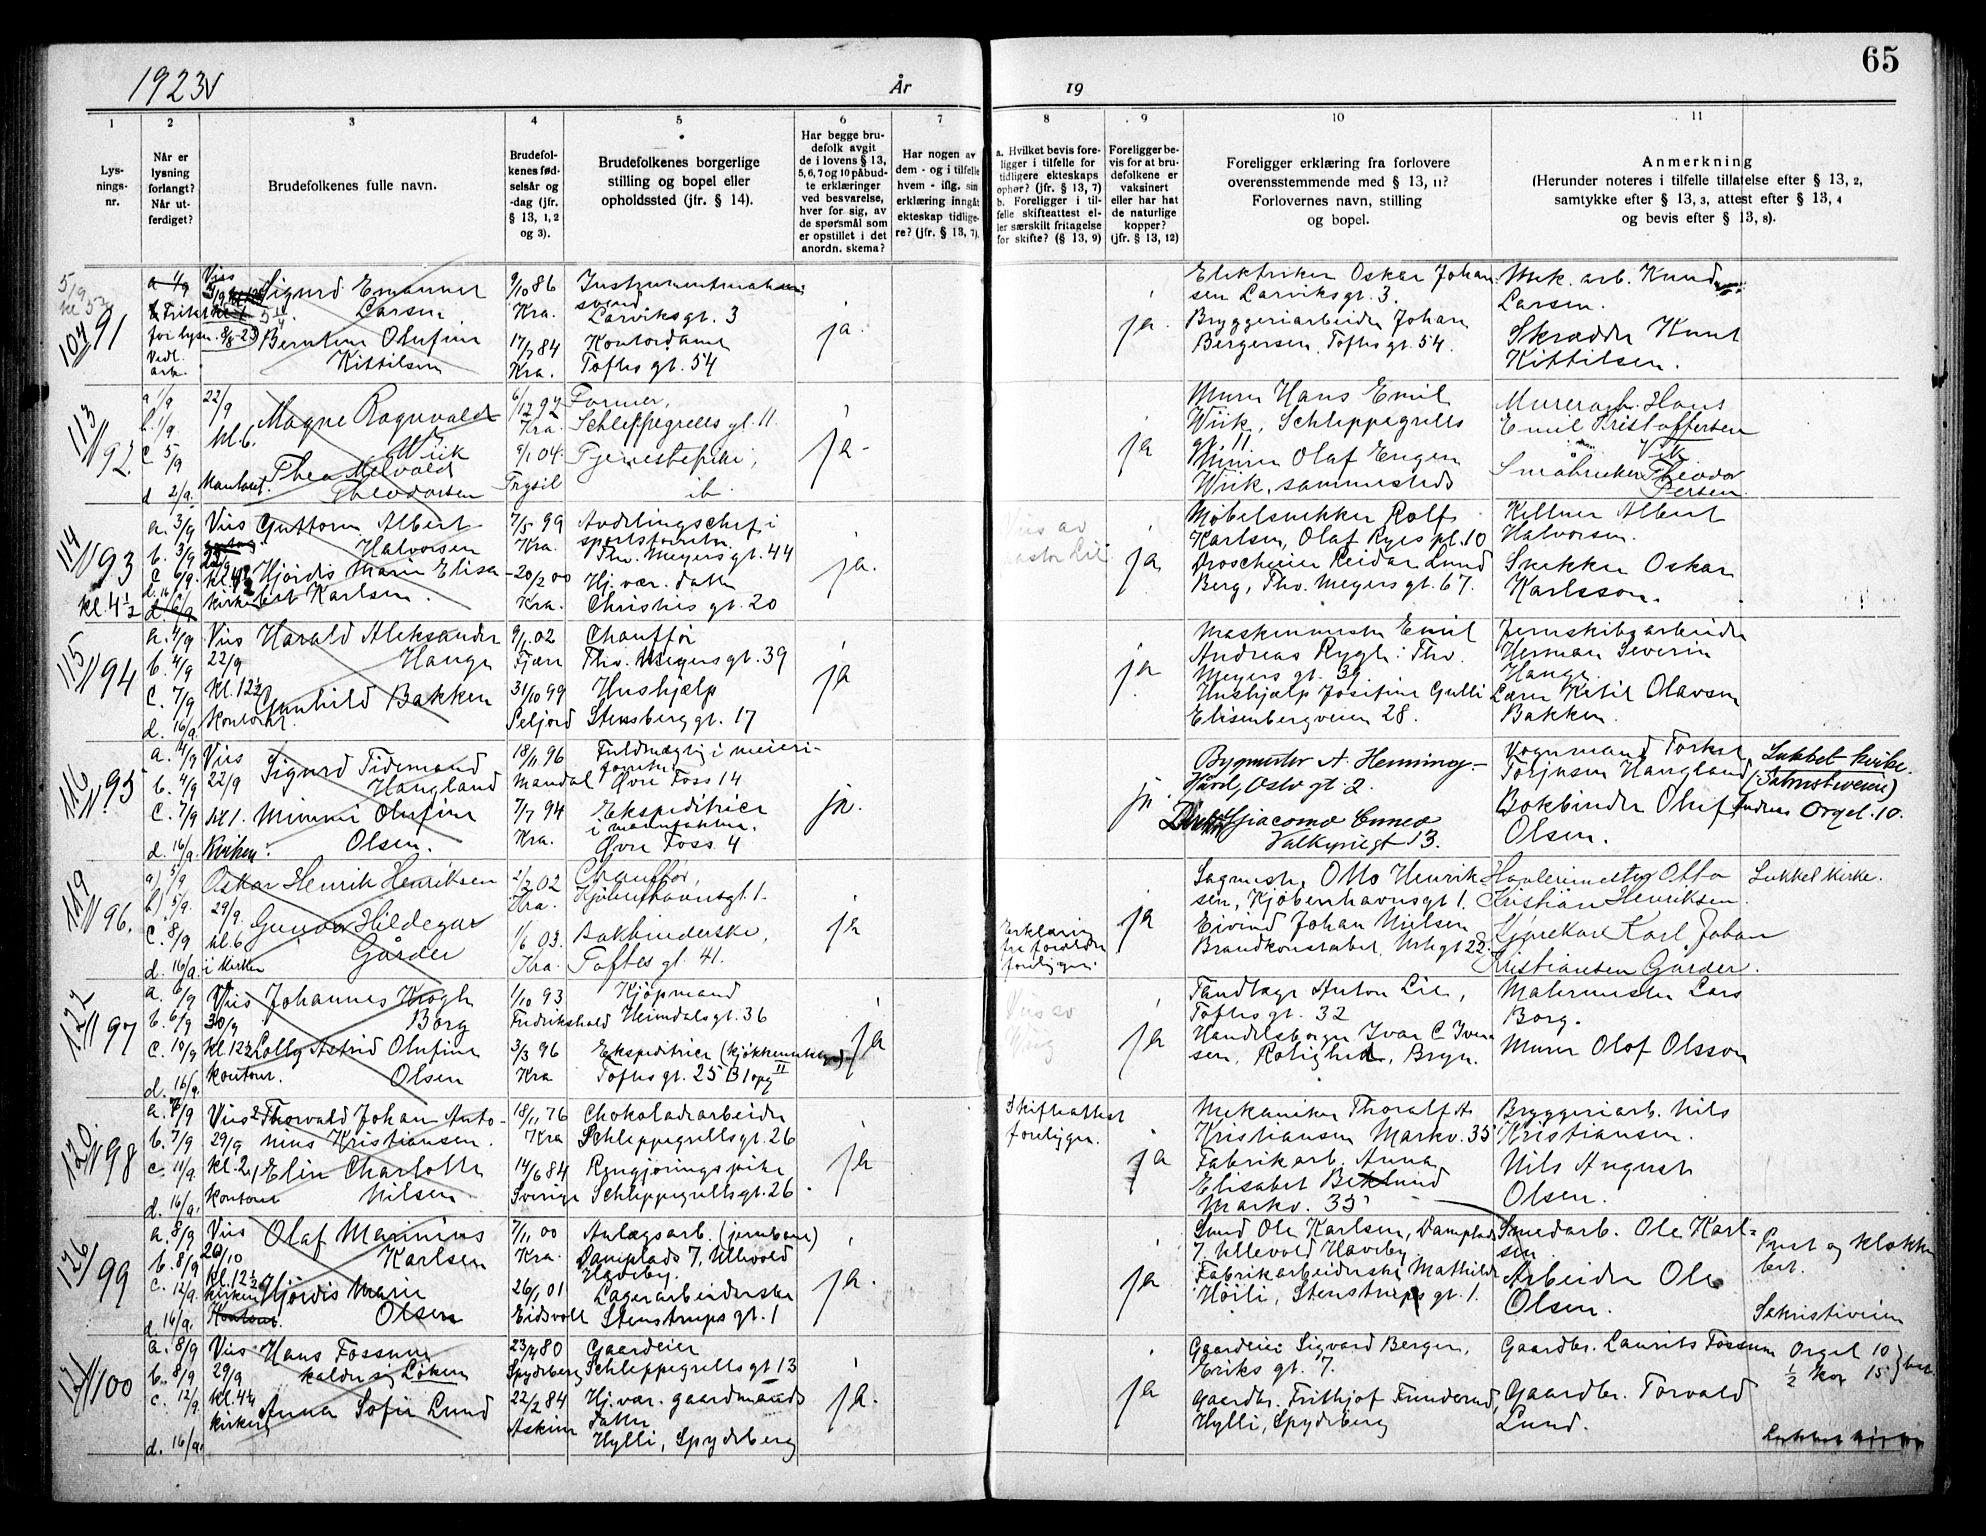 65
1923
År
19
1
2
3
4
5
6
7
8
9
10
11
Lys-
nings-
nr.
Når er
lysning
forlangt?
Når ut-
ferdiget?
Brudefolkenes fulle navn.
Brudefol-
kenes fød-
selsår og
-dag (jfr.
§ 13, 1, 2
og 3).
Brudefolkenes borgerlige
stilling og bopel eller
opholdssted (jfr. § 14).
Har begge bru-
defolk avgit
de i lovens § 13,
5, 6, 7 og 10 påbud-
te erklæringer
ved besvarelse,
hver for sig, av
de spørsmål som
er opstillet i det
anordn. skema?
Har nogen av
dem - og i tilfelle
hvem - iflg. sin
erklæring inngåt
ekteskap tidlige-
re? (jfr. § 13, 7).
a. Hvilket bevis fore-
ligger i tilfelle for
tidligere ekteskaps
ophør? (jfr. § 13, 7)
b. Foreligger i til-
felle skifteattest el-
ler særskilt fritagelse
for skifte? (§ 13, 9)
Foreligger be-
vis for at bru-
defolkene er
vaksinert
eller har hat
de naturlige
kopper?
(jfr. § 13, 12)
Foreligger erklæring fra forlovere
overensstemmende med § 13, 11?
Forlovernes navn, stilling
og bopel.
Anmerkning
(Herunder noteres i tilfelle tillatelse efter § 13, 2,
samtykke efter § 13, 3, attest efter § 13, 4
og bevis efter § 13, 8).
104 91
Sigurd Emanuel
Larsen
Berntine Olufine
Kittilsen
9/10 86
Kra.
17/7 84
Kra.
svend
Larviksgt. 3
Kontordame
Toftes gt. 54
ja.
ja.
Elektriker Oskar Johan-
sen Larviksgt. 3.
Bryggeriarbeider Johan
Bergersen, Toftes gt. 54.
Mek. arb. Knud
Larsen.
Skrædder Knut
Kittilsen.
113 92.
a 1/9
b. 1/9.
c 5/9
d 2/9.
22/9
kl. 6.
Magne Ragnvald
Wiik
Thea
Theodorsen
6/12 97
Kra.
9/1 04.
Trysil
Former,
Schleppegrells gt. 11.
Tjenestepike,
ib.
ja.
ja
Murer Hans Emil
Wiik, Schleppegrells
gt. 11
Murer Olaf Eugen
Wiik, sammesteds
Murerarb. Hans
Emil Kristoffersen
Vik
Småbruker Theodor
Persen.
114 93
kl. 4 1/2
a. 3/9
b. 3/9
c 6/9.
Viis
kirken
Guttorm Albert
Halvorsen
Hjördis Marie Elisa-
bet Karlsen.
7/5 99
Kra.
20/2 00
Kra.
Avdelingschef i
sportsforretn.
Th. Meyers gt. 44
Hj. vær. datter
Christies gt. 20
ja.
Viis av
pastor Lie
ja
Møbelsnekker Rolf
Karlsen, Olaf Ryes pl. 10
Droscheeier Reidar Lund
Berg, Thv. Meyers gt. 67.
Kellner Albert
Halvorsen.
Snekker Oskar
Karlsson.
115 94
a. 4/9
b. 4/9
c. 7/9
d. 16/9.
Viis
22/9
kl. 12 1/2
kontoret.
Harald Aleksander
Hauge
Gunhild Bakken
9/1 02
Fjære
31/10 99
Seljord
Chauffør
Thv. Meyers gt. 39
Hushjælp
Stensberggt. 17
ja
ja.
Maskinmester Emil
Andreas Rygh: Thv.
Meyers gt. 39
Hushjælp Josefine Gulli
Elisenbergveien 28.
Jernskibsarbeider
Herman Severin
Hauge.
Lærer Ketil Olavsen
Bakken.
116 95
a. 4/9
b. 4/9
c. 7/9
d. 16/9.
Viis
22/9
kl 1.
Kirken.
Sigurd Tidemand
Haugland
Mimmi Olufine
Olsen.
18/11 96
Mandal
7/7 94
Kra.
Fuldmægtig i meieri-
Øvre Foss 14
Ekspeditrice
i manufaktur.
Øvre Foss 4
ja.
ja.
Bygmester A. Henning-
Oslo gt. 2.
Giacomo Enneo
Valkyriegt 13.
Vognmand Torkel
Torjusen Haugland
Bokbinder Oluf
Olsen.
Lukket kirke.
(Sakristiveien)
Orgel. 10.
119 96.
a) 5/9
b) 5/9.
c. 8/9
d. 16/9.
29/9.
kl. 6
i kirken
Oskar Henrik Henriksen
Gunvor Hildegar
Gårder
2/2 02
Kra.
1/6 03.
Kra.
Chauffør,
Kjøbenhavnsgt. 1.
Bokbinderske,
Toftes gt. 41.
ja
Erklæring
fra forældre
foreligger.
ja
Sagmester Otto Henrik-
sen, Kjøbenhavnsgt 1.
Eivind Johan Nielsen
Brandkonstabel, Urtegt 22.
Høvlerimester Otto
Kristian Henriksen.
Kjørekar Karl Johan
Kristiansen Gårder.
Lukket kirke.
122 97
a. 6/9
b. 6/9
c. 10/9
d. 16/9.
Viis
30/9
kl. 12 1/2
kontor.
Johannes Krogh
Borg
Lolly Astrid Olufine
Olsen
1/10 93
Fredrikshald
3/3 96
Kra
Kjøpmand
Heimdalsgt. 36
Ekspeditrice
Toftes gt. 25 B 1 opg II
ja
Viis av
Wiig
ja
Tandlæge Anton Lie,
Toftes gt. 32
Handelsborger Ivar C. Iver-
sen, Rolighet, Bryn.
Malermester Lars
Borg.
Murer Olaf Olsson
120 98
a. 7/9
b. 7/9
c. 11/9
d. 16/9.
Viis
29/9
kl. 2
kontor
Thorvald Johan Anto-
nius Kristiansen.
Elin Charlotte
Nilsen
18/11 76
Kra
14/6 84
Sverige
Chokoladearbeider
Schleppegrellsgt. 26
Rengjøringspike
Schleppegrellsgt. 26
ja
Skifteattest
foreligger.
ja
Mekaniker Thoralf A.
Kristiansen Markv. 35
Fabrikarb. Anna
Elisabet
Markv. 35
Bryggeriarb. Nils
Kristiansen.
Nils August
Olsen.
126 99
a. 8/9
b. 8/9
c. 12/9.
d. 16/9.
Viis
20/10
kl. 12 1/2
kirken
Kontoret.
Olaf Marinius
Karlsen
Hjördis Marie
Olsen
7/11 00
Kra.
26/1 01
Eidsvoll
Anlægsarb. (jernbane)
Damplads 7, Ullevold
Haveby.
Lagerarbeiderske
Stenstrups gt. 1
ja.
ja
Smed Ole Karlsen, Damplads
7, Ullevold Haveby.
Fabrikarbeiderske Mathilde
Høili, Stenstrups gt. 1.
Smedarb. Ole Karl-
sen
Arbeider Ole
Olsen.
Prest og klokker
bet.
Sakristiveien
100
a. 8/9
b. 8/9
c. 12/9.
d. 16/9.
Viis
29/9
kirken
Hans Fossum
kalder sig Löken
Anna Sofie Lund
Spydeberg
22/2 84
Askim
Gaardeier
Schleppegrellsgt 13
Hj. vær. gaardmands
datter
Hylli, Spydeberg
ja.
ja
Gaardeier Sigvard Bergen,
Eriks gt. 7.
Gaardbr. Frithjof
Hylli, Spydeberg
Gaardbr. Laurits Fossum
Gaardbr. Torvald
Lund.
Orgel 10
1/2 kor 15 } bet.